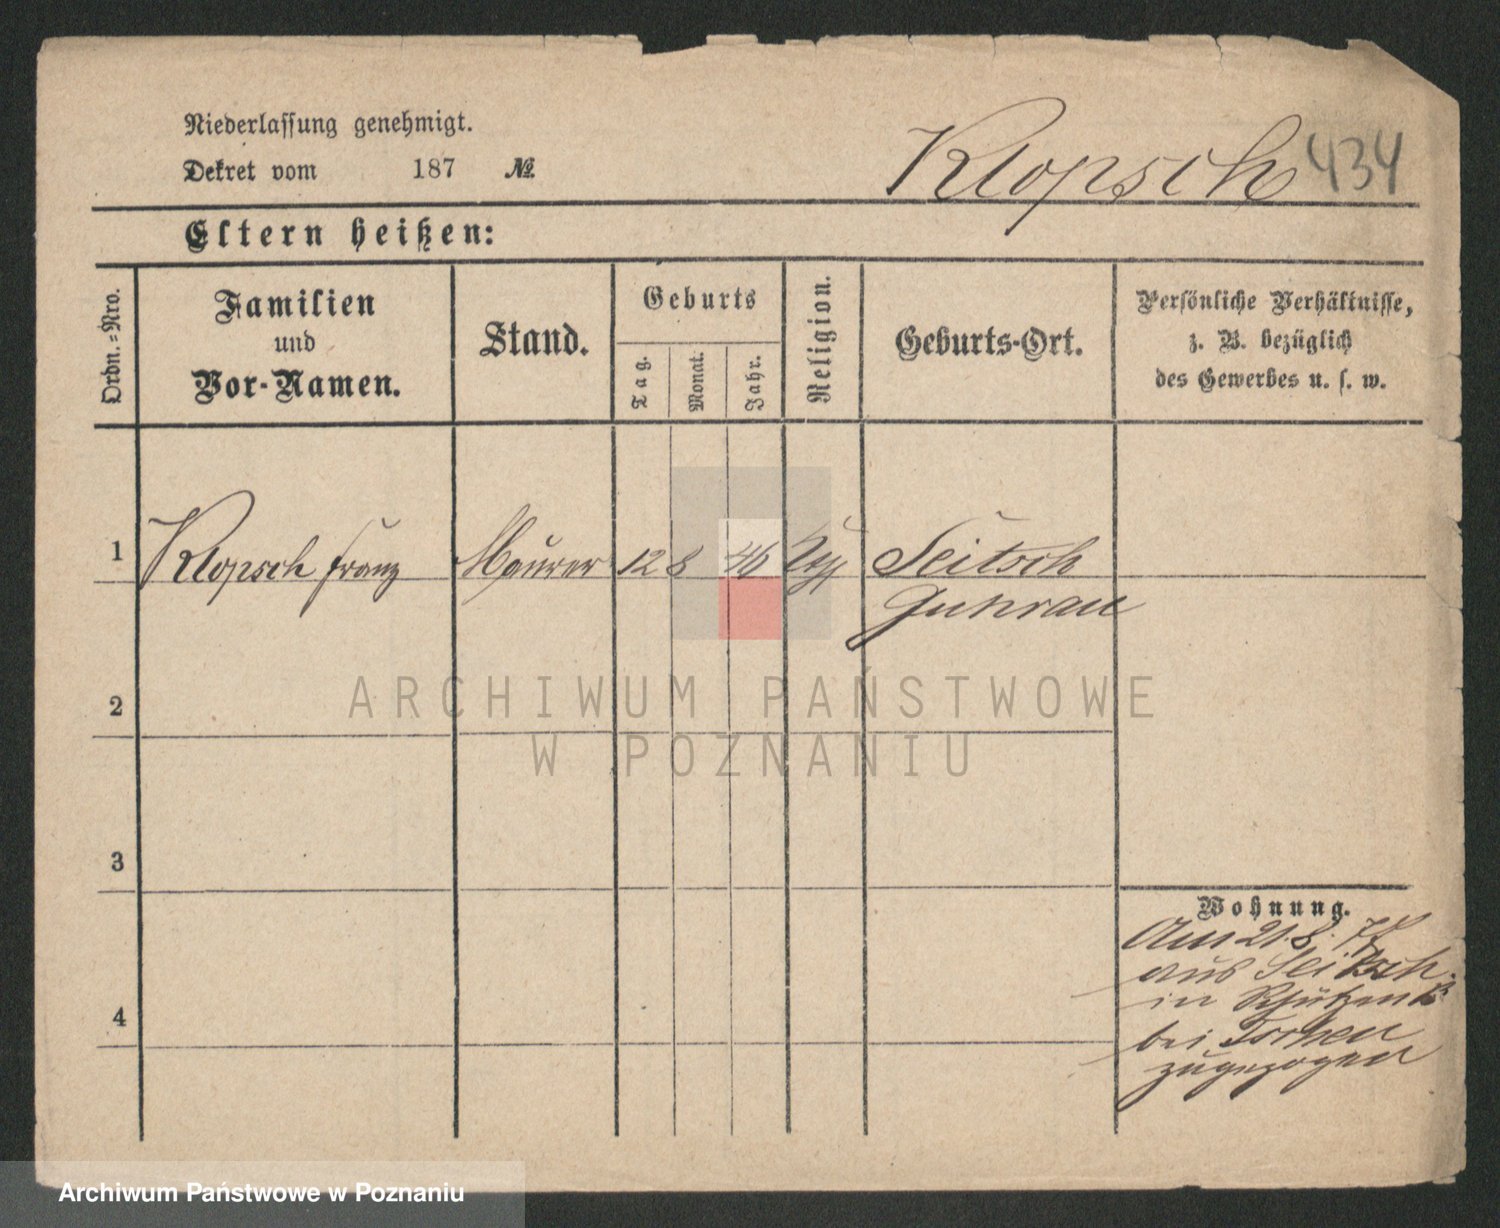 Niederlassung genehmigt.
Dekret vom 187 №
Klopsch 434
Eltern heißen:
Ordn.=Nro.
Familien
und
Vor-Namen.
Stand.
Geburts
Tag.
Monat.
Jahr.
Religion.
Geburts-Ort.
Persönliche Verhältnisse,
z. B. bezüglich
des Gewerbes u. s. w.
1 Klopsch Franz Maurer 12 8 46 Seitsch
Guhrau
ARCHIWUM PAŃSTWOWE
W POZNANIU
2
3
4
Wohnung.
Am 21.8.
aus Seitsch
in
bei
zugezogen
Archiwum Państwowe w Poznaniu